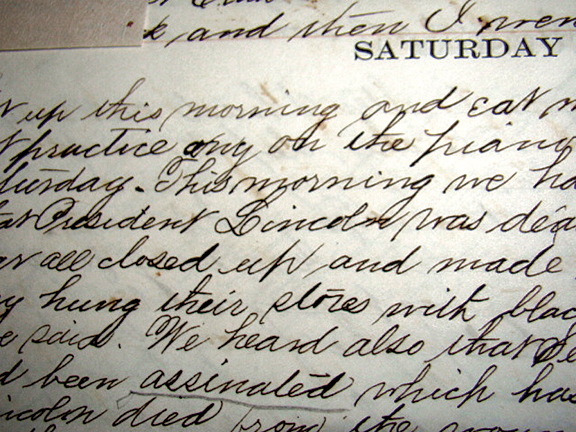 and then I wen
SATURDAY
up this morning and eat
practice any on the piano
turday. This morning we ha
at President Lincoln was dea
all closed up and made
hung their stores with blac
e said. We heard also that Se
d been assinated which has
incoln died from the woun